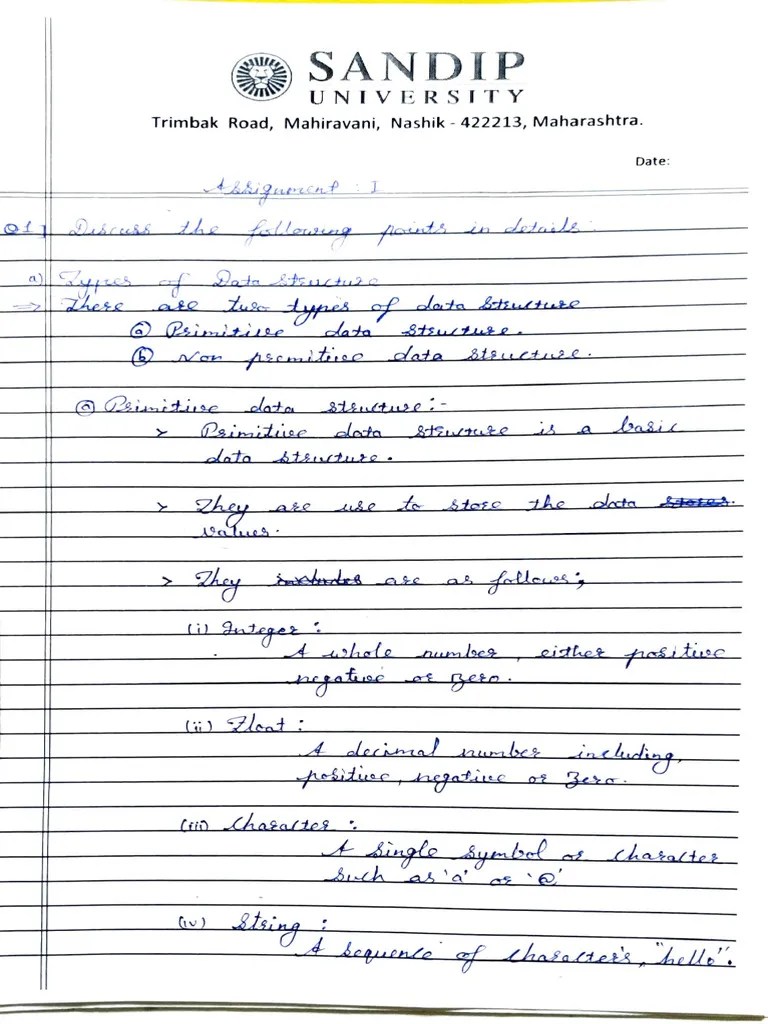 SANDIP
UNIVERSITY
Trimbak Road, Mahiravani, Nashik - 422213, Maharashtra.
Date:
Assignment : I
Q1] Discuss the following points in details.
a) Types of Data structure
⇒ There are two types of data structure
(a) Primitive data structure.
(b) Non premitive data structure.
(a) Primitive data structure:-
> Primitive data structure is a basic
data structure.
> They are use to store the data stores.
values.
> They includes are as follows;
(i) Integer :
A whole number, either positive
negative or zero.
(ii) Float :
A decimal number including,
positive, negative or zero.
(iii) Character :
A single symbol or character
such as 'a' or '@'
(iv) String :
A sequence of characters, "hello".